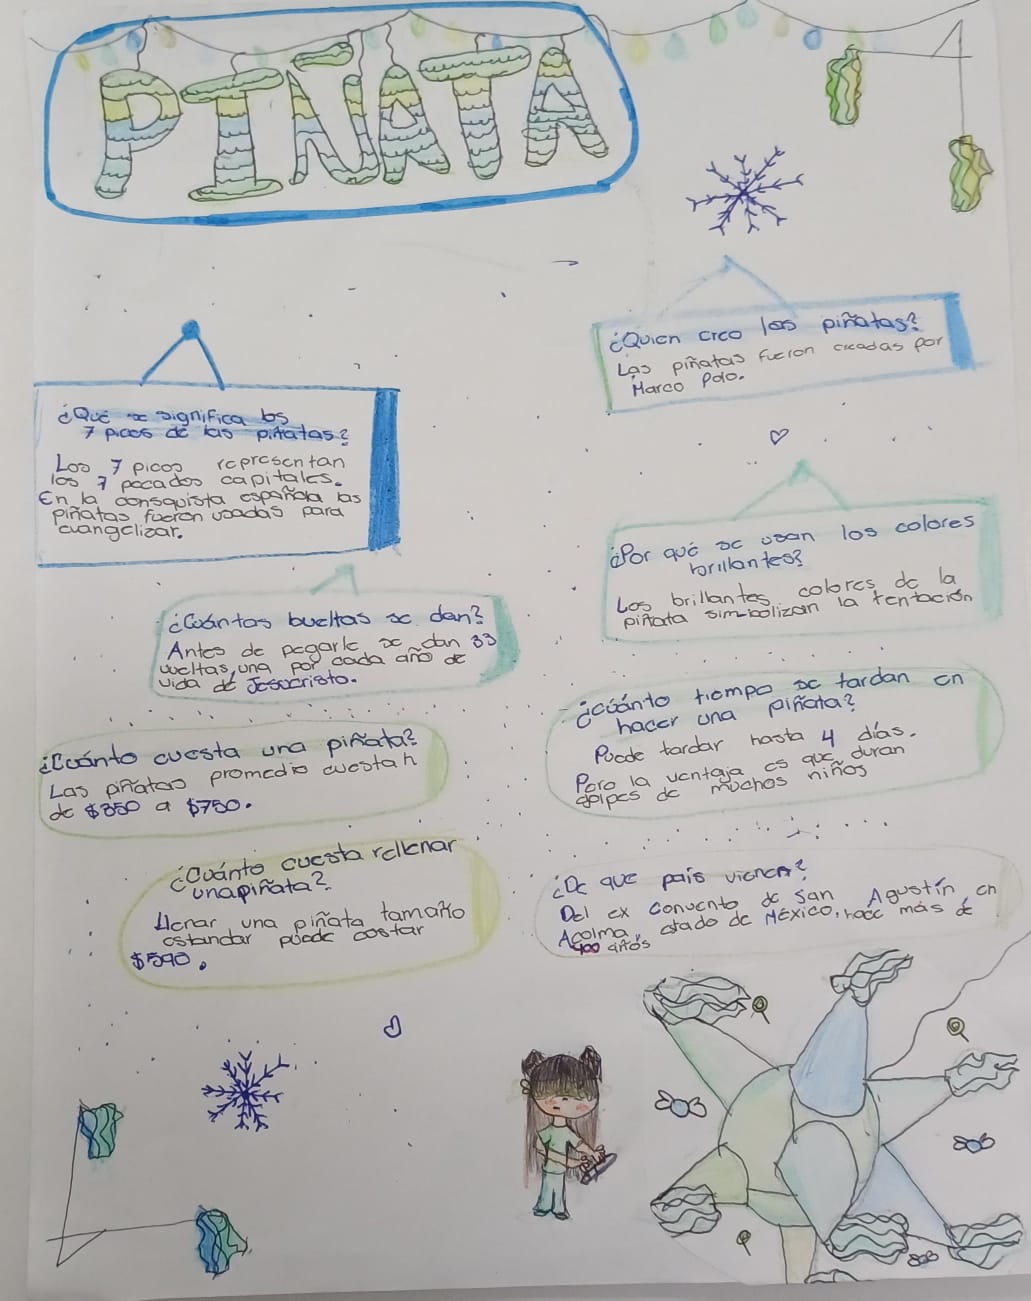 PIÑATA
¿Quien creo las piñatas?
Las piñatas fueron creadas por
Marco Polo.
¿Que se significa los
7 picos de las piñatas?
Los 7 picos representan
los 7 pecados capitales.
En la consquista española las
piñatas fueron usadas para
evangelizar.
¿Por qué se usan los colores
brillantes?
Los brillantes colores de la
piñata simbolizan la tentación
¿Cuántas bueltas se dan?
Antes de pegarle se dan 33
vueltas, una por cada año de
vida de Jesucristo.
¿Cuánto tiempo se tardan en
hacer una piñata?
Puede tardar hasta 4 días.
Pero la ventaja es que duran
golpes de muchos niños
¿Cuánto cuesta una piñata?
Las piñatas promedio cuestan
de $350 a $750.
¿Cuánto cuesta rellenar
una piñata?
Llenar una piñata tamaño
estandar puede costar
$590.
¿De que país vienen?
Del ex convento de San Agustín en
Acolma, estado de México, hace más de
400 años